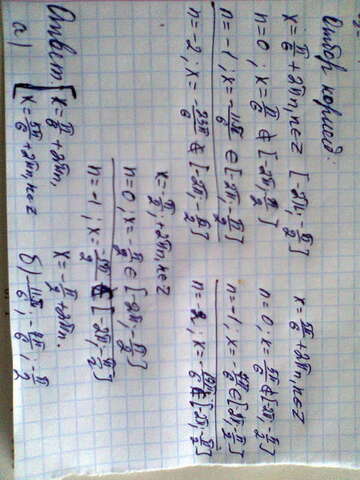 Отбор корней:
x = π/6 + 2πn, n∈Z [-2π; -π/2]
n=0; x = π/6 ∉ [-2π; -π/2]
n=-1; x = -11π/6 ∈ [-2π; -π/2]
n=-2; x = -23π/6 ∉ [-2π; -π/2]
x = 5π/6 + 2πn, n∈Z
n=0; x = 5π/6 ∉ [-2π; -π/2]
n=-1; x = -7π/6 ∈ [-2π; -π/2]
n=-2; x = -19π/6 ∉ [-2π; -π/2]
x = -π/2 + 2πn, n∈Z
n=0; x = -π/2 ∈ [-2π; -π/2]
n=-1; x = -5π/2 ∉ [-2π; -π/2]
Ответ:
x = π/6 + 2πn,
x = -π/2 + 2πn.
а) x = 5π/6 + 2πn, n∈Z
б) -11π/6; -7π/6; -π/2